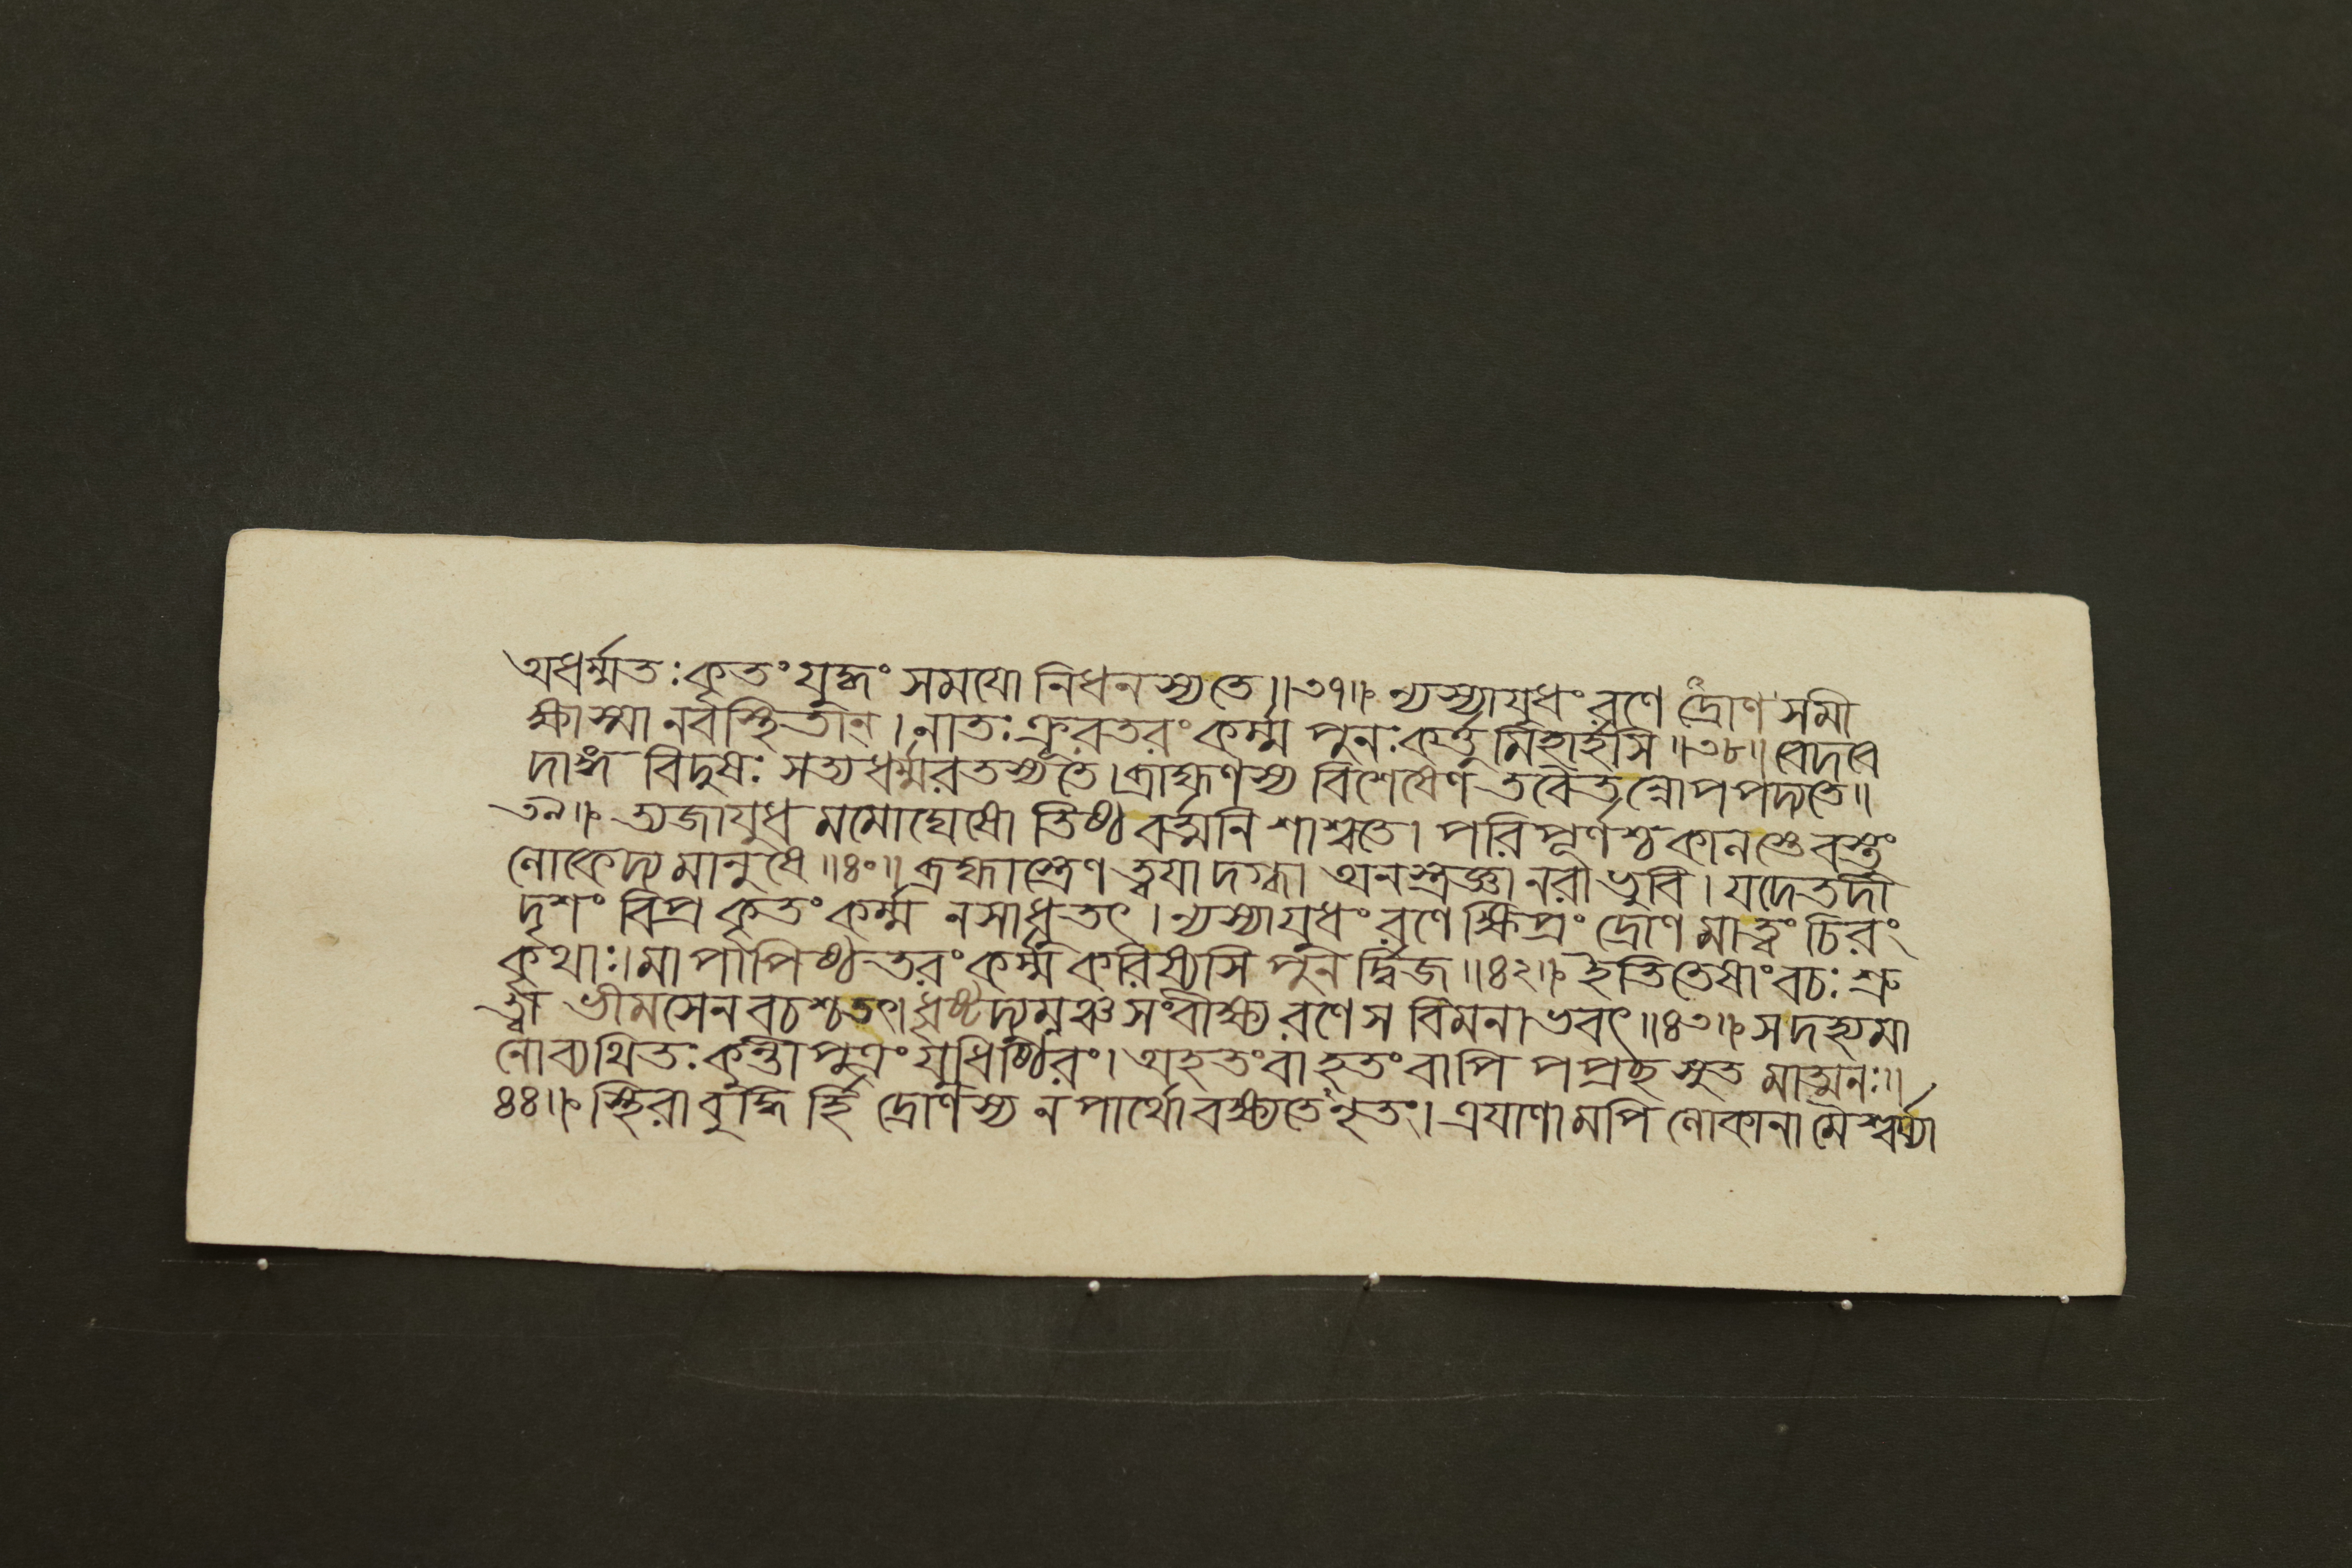 অধর্ম্মতঃ কৃতং যুদ্ধং সময়ো নিধনস্য তে॥৩৭॥ ন্যস্যাযুধং রণে দ্রোণ সমী
ক্ষাস্মানবস্থিতান্। নাতঃ ক্রূরতরং কর্ম্ম পুনঃ কর্ত্তুমিহার্হসি॥৩৮॥ বেদবে
দাঙ্গ বিদুষঃ সত্যধর্ম্মরতস্য তে। ব্রাহ্মণস্য বিশেষেণ তবৈতন্নোপপদ্যতে॥
৩৯॥ ত্যজাযুধমমোঘেষো তিষ্ঠ বর্ত্মনি শাশ্বতে। পরিপূর্ণশ্চ কালস্তে বস্তুং
লোকেদ্য মানুষে॥৪০॥ ব্রহ্মাস্ত্রেণ ত্বযা দগ্ধা অনস্ত্রজ্ঞা নরা ভুবি। যদেতদী
দৃশং বিপ্র কৃতং কর্ম্ম ন সাধু তৎ। ন্যস্যাযুধং রণে ক্ষিপ্রং দ্রোণ মা ত্বং চিরং
কৃথাঃ। মা পাপিষ্ঠতরং কর্ম্ম করিষ্যসি পুনর্দ্বিজ॥৪২॥ ইতি তেষাং বচঃ শ্রু
ত্বা ভীমসেনবচশ্চ তৎ। ধৃষ্টদ্যুম্নঞ্চ সংবীক্ষ্য রণে স বিমনাভবৎ॥৪৩॥ স দহ্যমা
নো ব্যথিতঃ কুন্তীপুত্রং যুধিষ্ঠিরং। অহতং বা হতং বাপি পপ্রচ্ছ সুতমাত্মনঃ॥
৪৪॥ স্থিরা বুদ্ধির্হি দ্রোণস্য ন পার্থো বক্ষ্যতেনৃতং। ত্রযাণামপি লোকানামৈশ্বর্য্যা